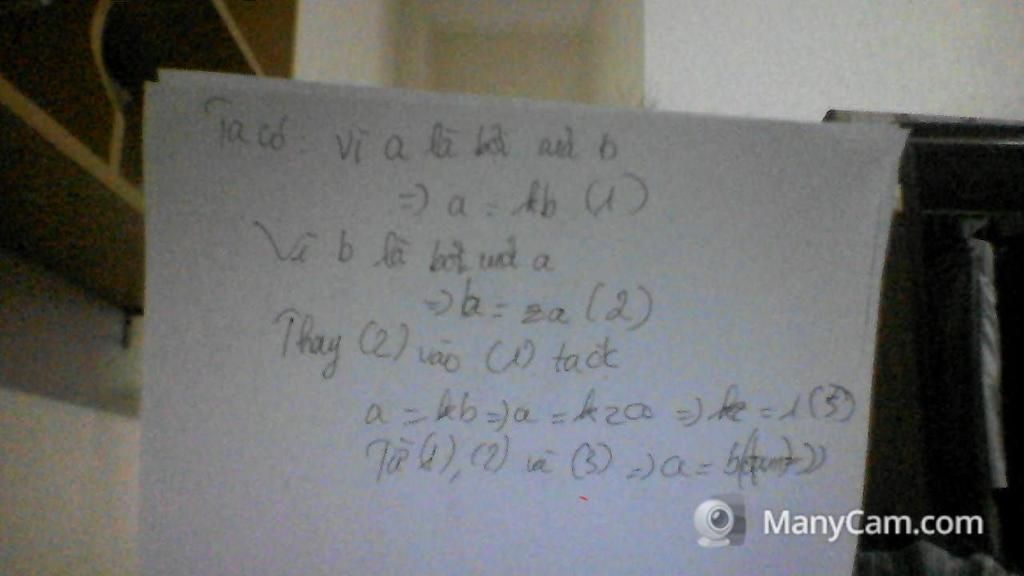 Ta có: Vì a là bội của b
=> a = kb (1)
Vì b là bội của a
=> b = za (2)
Thay (2) vào (1) ta đc
a = kb => a = kza => kz = 1 (3)
Từ (1), (2) và (3) => a = b
ManyCam.com